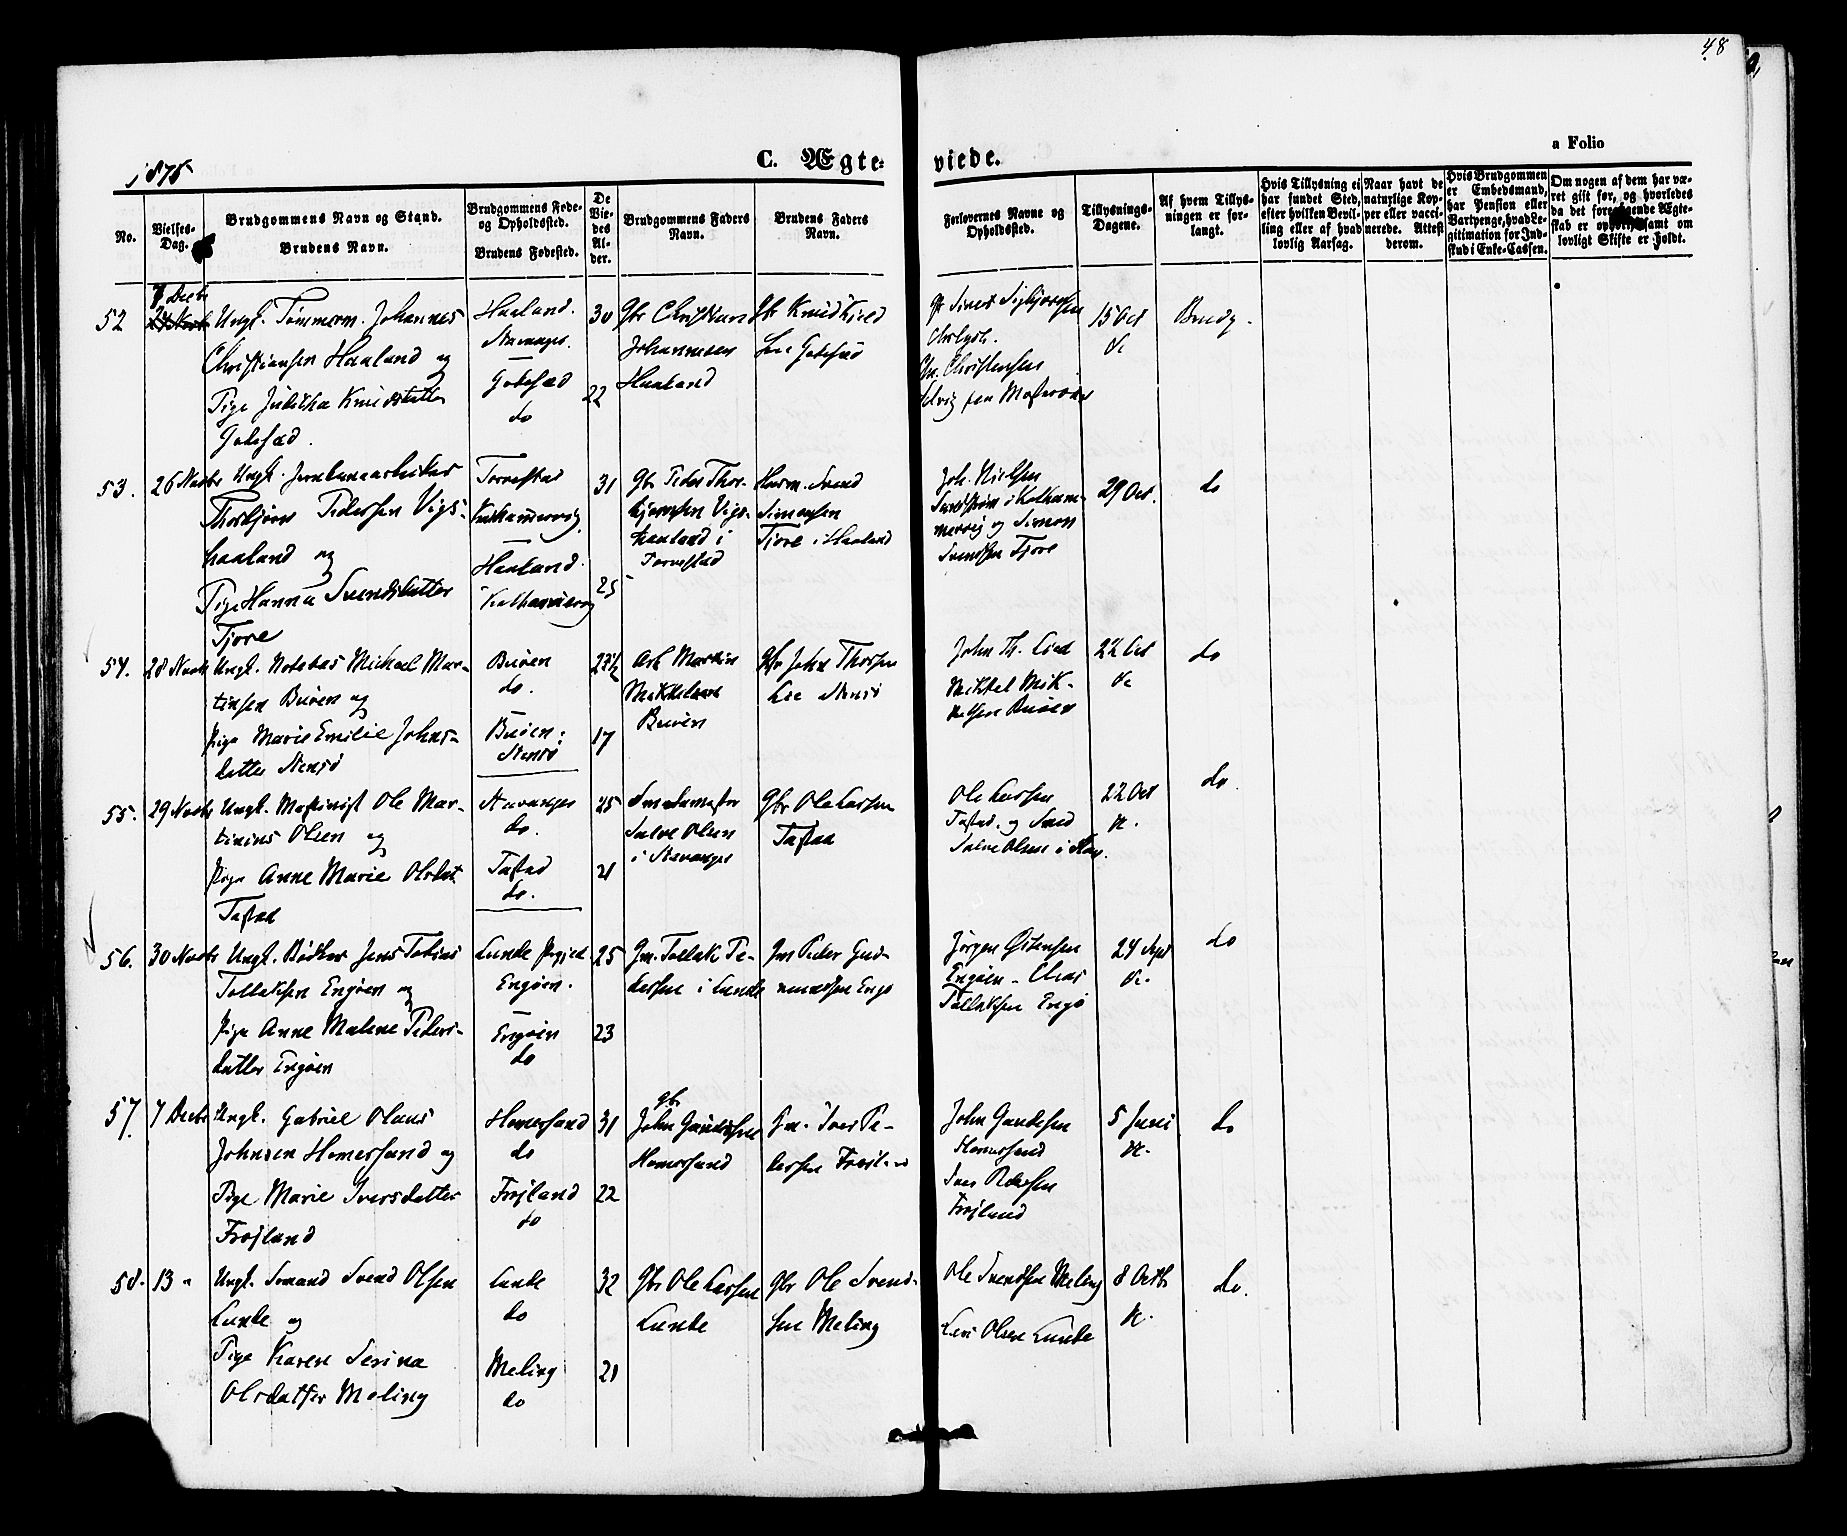 48
1875
C. Ægte-
viede.
a Folio
No.
Vielses-
Dag.
Brudgommens Navn og Stand.
Brudens Navn.
Brudgommens Føde-
og Opholdssted.
Brudens Fødested.
De
Vie-
des
Al-
der.
Brudgommens Faders
Navn.
Brudens Faders
Navn.
Forlovernes Navne og
Opholdssted.
Tillysnings-
Dagene.
Af hvem Tillys-
ningen er for-
langt.
Hvis Tillysning ei
har fundet Sted,
efter hvilken Bevil-
ling eller af hvad
lovlig Aarsag.
Naar havt de
naturlige Kop-
per eller vacci-
nerede. Attest
derom.
Hvis Brudgommen
er Embedsmand,
har Pension eller
Vartpenge, hvad Le-
gitimation for Ind-
skud i Enke-Cassen.
Om nogen af dem har væ-
ret gift før, og hvorledes
da det foregaaende Ægte-
skab er ophørt, samt om
lovligt Skifte er holdt.
52
7 Decbr
Ungk. Tømmerm. Johannes
Christiansen Haaland og
Pige Juditha Knudsdatter
Haaland.
Stavanger.
do
30
22
Gbr Christian
Johannesen
Haaland
Gbr Knud
15 Oct
Brudg.
53.
26 Novbr
Ungk. Jernbanearbeider
Thorbjørn Pedersen Vigs-
haaland og
Pige Hanna Svendsdatter
Tjore
Torvestad
Haaland.
31
25
Gbr Peder Thor-
bjørnsen Vigs-
haaland i
Torvestad
Husm. Svend
Simonsen
Tjore i Haaland
Joh. Nielsen
og Simon
Svendsen Tjore
29 Oct.
do
54.
28 Novbr
Ungk. Notebas Michael Mar-
tinsen Buøen og
Pige Marie Emilie Johns-
datter Stensø
Buøen
do.
Buøen.
Stensø
17
Arb Martin
Mikkelsen
Buøen
Gbr John Thorsen
Lie Stensø
John Th. Lie
Mikkel Mik-
kelsen Buøen
22 Oct
do
55.
29 Novbr
Ungk. Maskinist Ole Mar-
tinius Olsen og
Pige Anne Marie Olsdat.
Tastad
Stavanger
do.
Tastad
do.
25
21
Salve Olsen
i Stavanger
Gbr Ole Larsen
Tastad
Ole Larsen
Tastad. og
Salve Olsen i Stav.
22 Oct
do
56.
30 Novbr
Ungk. Bødker Jens Tobias
Tollaksen Engøen og
Pige Anne Malene Peders-
datter Engøen
Lunde Prgjed.
Engøen.
Engøen
do
25
23
Gm. Tollak Pe-
dersen i Lunde
Gm Peder Gud-
mundsen Engø
Jørgen Østensen
Engøen
Tollaksen Engø
24 Sept
do
57.
7 Decbr
Ungk. Gabriel Olaus
Johnsen Homersand og
Pige Marie Iversdatter
Frøjland
Homersand
do
Frøjland
do
31
22
Gbr
John Gundersen
Homersand
Gm. Iver Pe-
dersen Frøiland
John Gundersen
Homersand
Iver Pedersen
Frøjland
5 Juni
do
58.
13 "
Ungk. Sømand Svend Olsen
Lunde og
Pige Karen Serina
Olsdatter Meling
Lunde
do
Meling
do
32
21
Gbr Ole Larsen
Lunde
Gbr Ole Svend-
sen Meling
Ole Svendsen Meling
Lars Olsen Lunde
8 Octb
do.